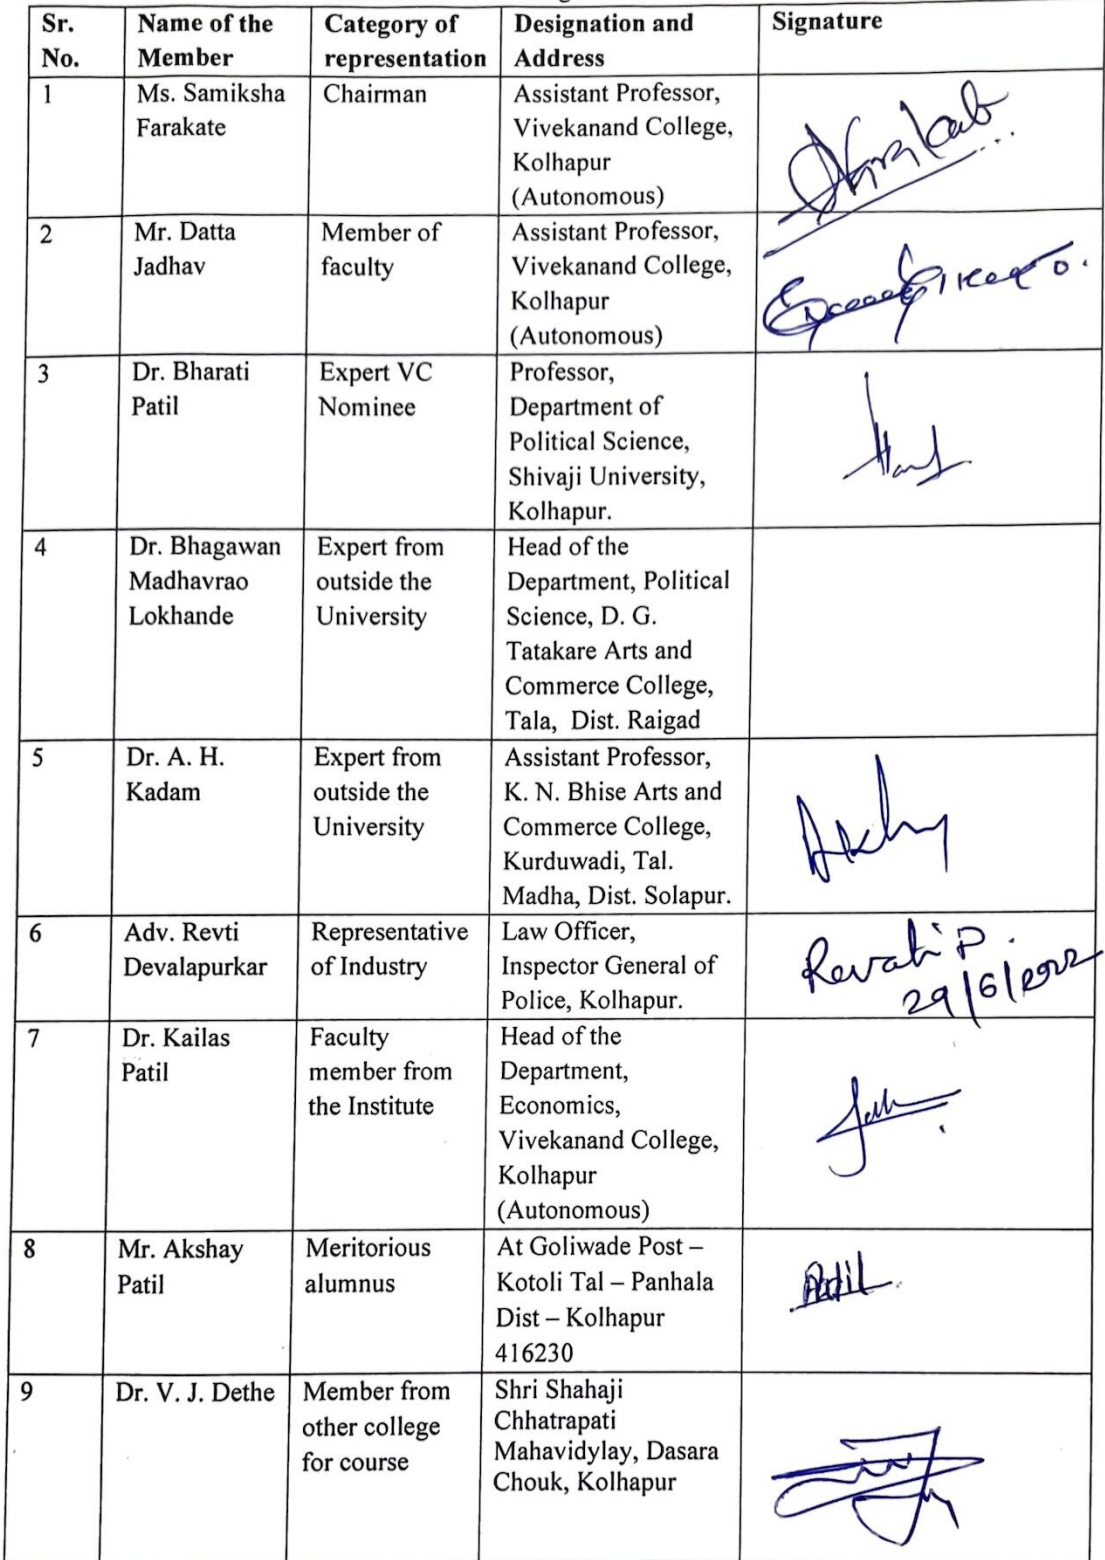 Sr. No.
Name of the Member
Category of representation
Designation and Address
Signature
1
Ms. Samiksha
Farakate
Chairman
Assistant Professor,
Vivekanand College,
Kolhapur
(Autonomous)
2
Mr. Datta
Jadhav
Member of
faculty
Assistant Professor,
Vivekanand College,
Kolhapur
(Autonomous)
3
Dr. Bharati
Patil
Expert VC
Nominee
Professor,
Department of
Political Science,
Shivaji University,
Kolhapur.
4
Dr. Bhagawan
Madhavrao
Lokhande
Expert from
outside the
University
Head of the
Department, Political
Science, D. G.
Tatakare Arts and
Commerce College,
Tala, Dist. Raigad
5
Dr. A. H.
Kadam
Expert from
outside the
University
Assistant Professor,
K. N. Bhise Arts and
Commerce College,
Kurduwadi, Tal.
Madha, Dist. Solapur.
6
Adv. Revti
Devalapurkar
Representative
of Industry
Law Officer,
Inspector General of
Police, Kolhapur.
Revati P.
29/6/2022
7
Dr. Kailas
Patil
Faculty
member from
the Institute
Head of the
Department,
Economics,
Vivekanand College,
Kolhapur
(Autonomous)
8
Mr. Akshay
Patil
Meritorious
alumnus
At Goliwade Post –
Kotoli Tal – Panhala
Dist – Kolhapur
416230
Patil
9
Dr. V. J. Dethe
Member from
other college
for course
Shri Shahaji
Chhatrapati
Mahavidylay, Dasara
Chouk, Kolhapur